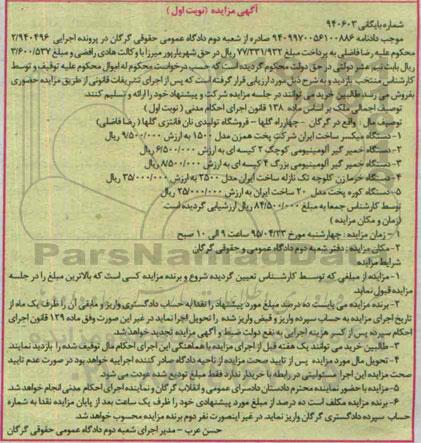 آگهی مزایده (نوبت اول)
شماره بایگانی ۹۴۰۶۰۳
موجب دادنامه ۹۴۰۹۹۷۰۰۵۶۱۰۰۸۸۶ صادره از شعبه دوم دادگاه عمومی حقوقی گرگان در پرونده اجرایی ۲/۹۴۰۴۹۶
محکوم علیه رضا فاضلی به پرداخت مبلغ ۷۷/۲۳۱/۹۳۲ ریال در حق شهریارپور میرزا با وکالت هادی رافضی و مبلغ ۳/۶۰۰/۵۳۷
ریال بابت نیم عشر دولتی در حق دولت محکوم گردیده است که حسب درخواست محکوم له اموال محکوم علیه توقیف و توسط
کارشناس منتخب بازدید و به شرح ذیل مورد ارزیابی قرار گرفته است که پس از اجرای تشریفات قانونی از طریق مزایده حضوری
بفروش می رسد. طالبین خرید می توانند در جلسه مزایده شرکت و پیشنهاد خود را ارائه و تسلیم کنند.
توصیف اجمالی ملک بر اساس ماده ۱۳۸ قانون اجرای احکام مدنی (نوبت اول)
توصیف مال: واقع در گرگان - چهارراه گلها - فروشگاه تولیدی نان فانتزی گلها (رضا فاضلی)
۱- دستگاه میکسر ساخت ایران شرکت پخت همزن مدل ۱۵۰۰ به ارزش ۹/۵۰۰/۰۰۰ ریال
۲- دستگاه خمیر گیر آلومینیومی کوچک ۲ کیسه ای به ارزش ۶/۵۰۰/۰۰۰ ریال
۳- دستگاه خمیر گیر آلومینیومی بزرگ ۴ کیسه ای به ارزش ۸/۵۰۰/۰۰۰ ریال
۴- دستگاه خرما زن کلوچه تک نازله ساخت ایران مدل ۳۵۰۰ به ارزش ۳۵/۰۰۰/۰۰۰ ریال
۵- دستگاه کوره پخت مدل ۲۰ ساخت ایران به ارزش ۲۵/۰۰۰/۰۰۰ ریال
توسط کارشناس جمعا به مبلغ ۸۴/۵۰۰/۰۰۰ ریال ارزشیابی گردیده است.
(زمان و مکان مزایده)
۱- زمان مزایده: چهارشنبه مورخ ۹۵/۰۴/۲۳ ساعت ۹ الی ۱۰ صبح
۲- مکان مزایده: دفتر شعبه دوم دادگاه عمومی و حقوقی گرگان
شرایط مزایده
۱- مزایده از مبلغی که توسط کارشناس تعیین گردیده شروع و برنده مزایده کسی است که بالاترین مبلغ را در جلسه
مزایده قبول نماید.
۲- برنده مزایده می بایست ده درصد مبلغ مورد پیشنهاد را نقدا به حساب دادگستری واریز و مابقی آن را ظرف یک ماه از
تاریخ اجرای مزایده به حساب سپرده واریز و فیش واریز شده را تحویل اجرا نماید در غیر این صورت وفق ماده ۱۲۹ قانون اجرای
احکام سپرده پس از کسر هزینه اجرایی به نفع دولت ضبط و آگهی مزایده تجدید خواهد شد.
۳- طالبین خرید می توانند یک هفته قبل از اجرای مزایده با هماهنگی این اجرای احکام مال توقیف شده را بازدید نمایند.
۴- تحویل مال مورد مزایده پس از تایید صحت مزایده از ناحیه دادگاه صادر کننده اجراییه خواهد بود در صورت عدم تایید
صحت مزایده این اجرا مسئولیتی در رابطه با خریدار ندارد فقط مبلغ تودیع شده عودت می شود
۵- مزایده با حضور نماینده محترم دادستان دادسرای عمومی و انقلاب گرگان و نماینده اجرای احکام مدنی انجام خواهد شد.
۶- برنده مزایده مکلف است ده درصد از مبلغ مورد پیشنهادی خود را ظرف یک ساعت بعد از پایان مزایده نقدا به شماره
حساب سپرده دادگستری گرگان واریز نماید. در غیر اینصورت نفر دوم برنده مزایده محسوب خواهد شد.
حسن عرب - مدیر اجرای شعبه دوم دادگاه عمومی حقوقی گرگان